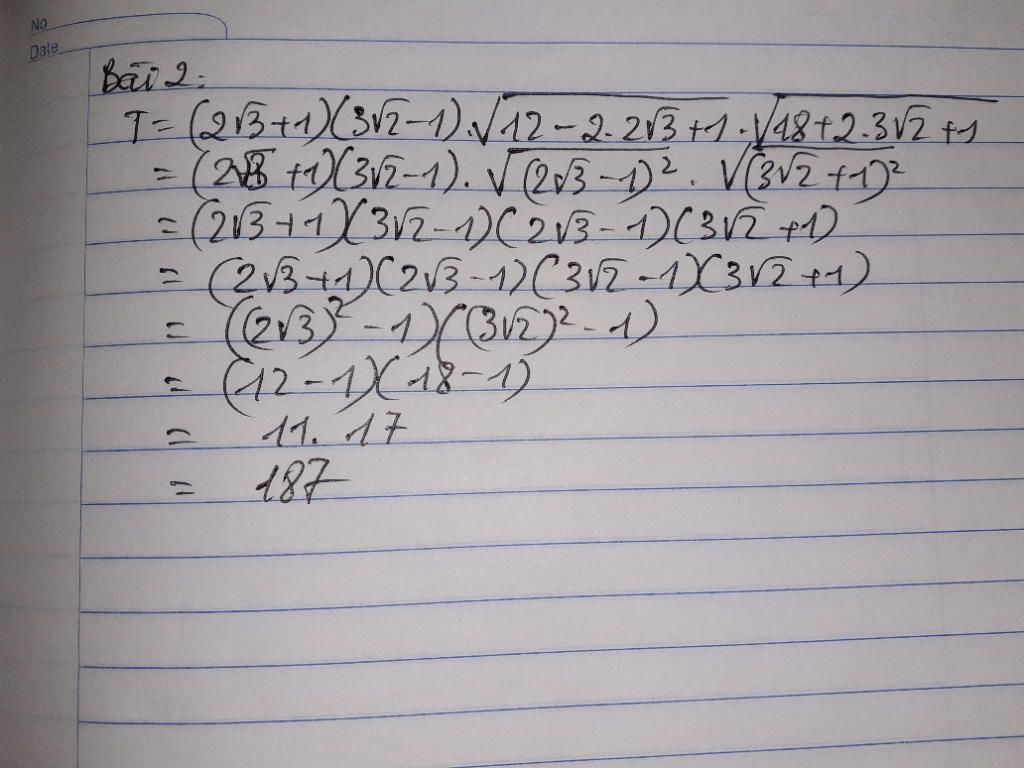 No
Date
Bài 2:
T = (2√3+1)(3√2-1).√(12-2.2√3+1).√(18+2.3√2+1)
= (2√3+1)(3√2-1).√(2√3-1)².√(3√2+1)²
= (2√3+1)(3√2-1)(2√3-1)(3√2+1)
= (2√3+1)(2√3-1)(3√2-1)(3√2+1)
= ((2√3)²-1)((3√2)²-1)
= (12-1)(18-1)
= 11.17
= 187